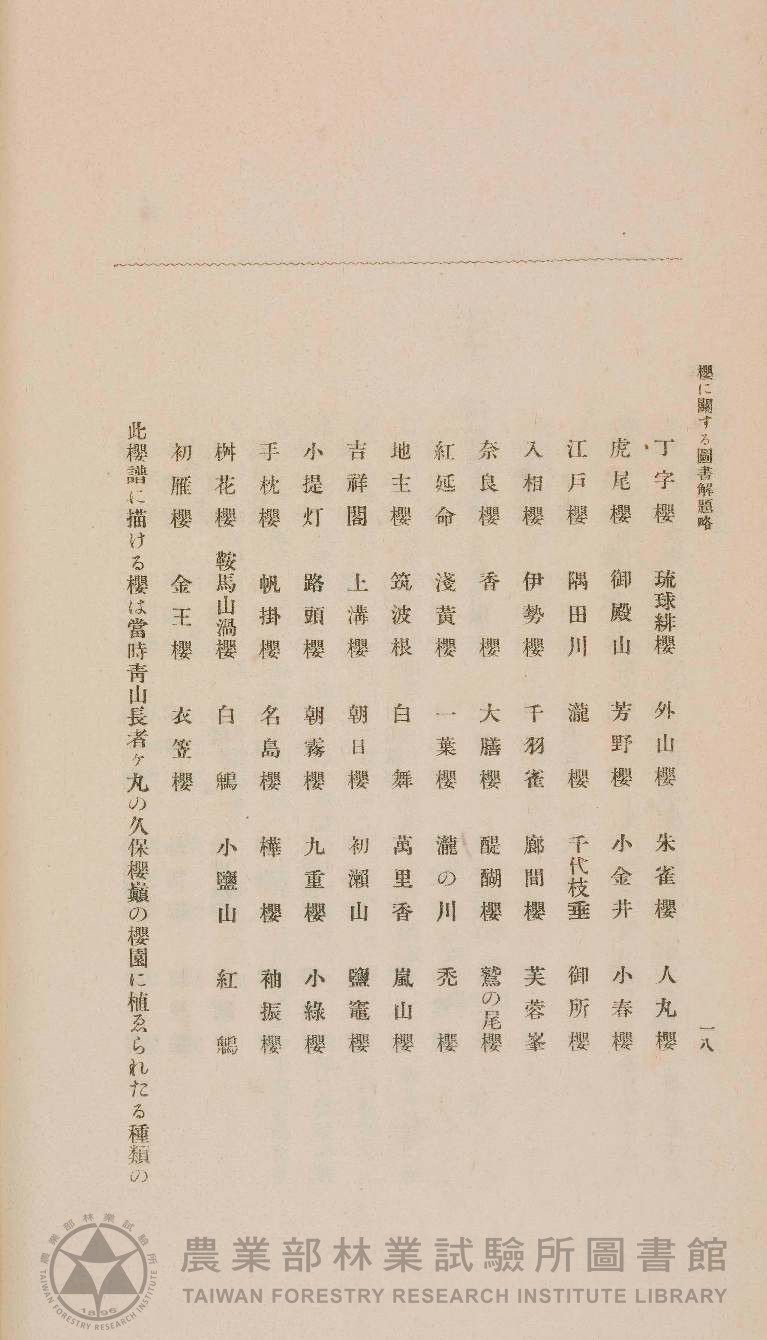 櫻に關する圖書解題略
一八
丁字櫻 琉球緋櫻 外山櫻 朱雀櫻 人丸櫻
虎尾櫻 御殿山 芳野櫻 小金井 小春櫻
江戸櫻 隅田川 瀧櫻 千代枝垂 御所櫻
入相櫻 伊勢櫻 千羽雀 廊間櫻 芙蓉峯
奈良櫻 香櫻 大膳櫻 醍醐櫻 鷲の尾櫻
紅延命 淺黃櫻 一葉櫻 瀧の川 禿櫻
地主櫻 筑波根 白舞 萬里香 嵐山櫻
吉祥閣 上溝櫻 朝日櫻 初瀨山 鹽竈櫻
小提灯 路頭櫻 朝霧櫻 九重櫻 小綠櫻
手枕櫻 帆掛櫻 名島櫻 樺櫻 袖振櫻
桝花櫻 鞍馬山渦櫻 白鵤 小鹽山 紅鵤
初雁櫻 金王櫻 衣笠櫻
此櫻譜に描ける櫻は當時靑山長者ヶ丸の久保櫻巓の櫻園に植ゑられたる種類の
農業部林業試驗所圖書館
TAIWAN FORESTRY RESEARCH INSTITUTE LIBRARY
農業部林業試驗所
TAIWAN FORESTRY RESEARCH INSTITUTE
1896